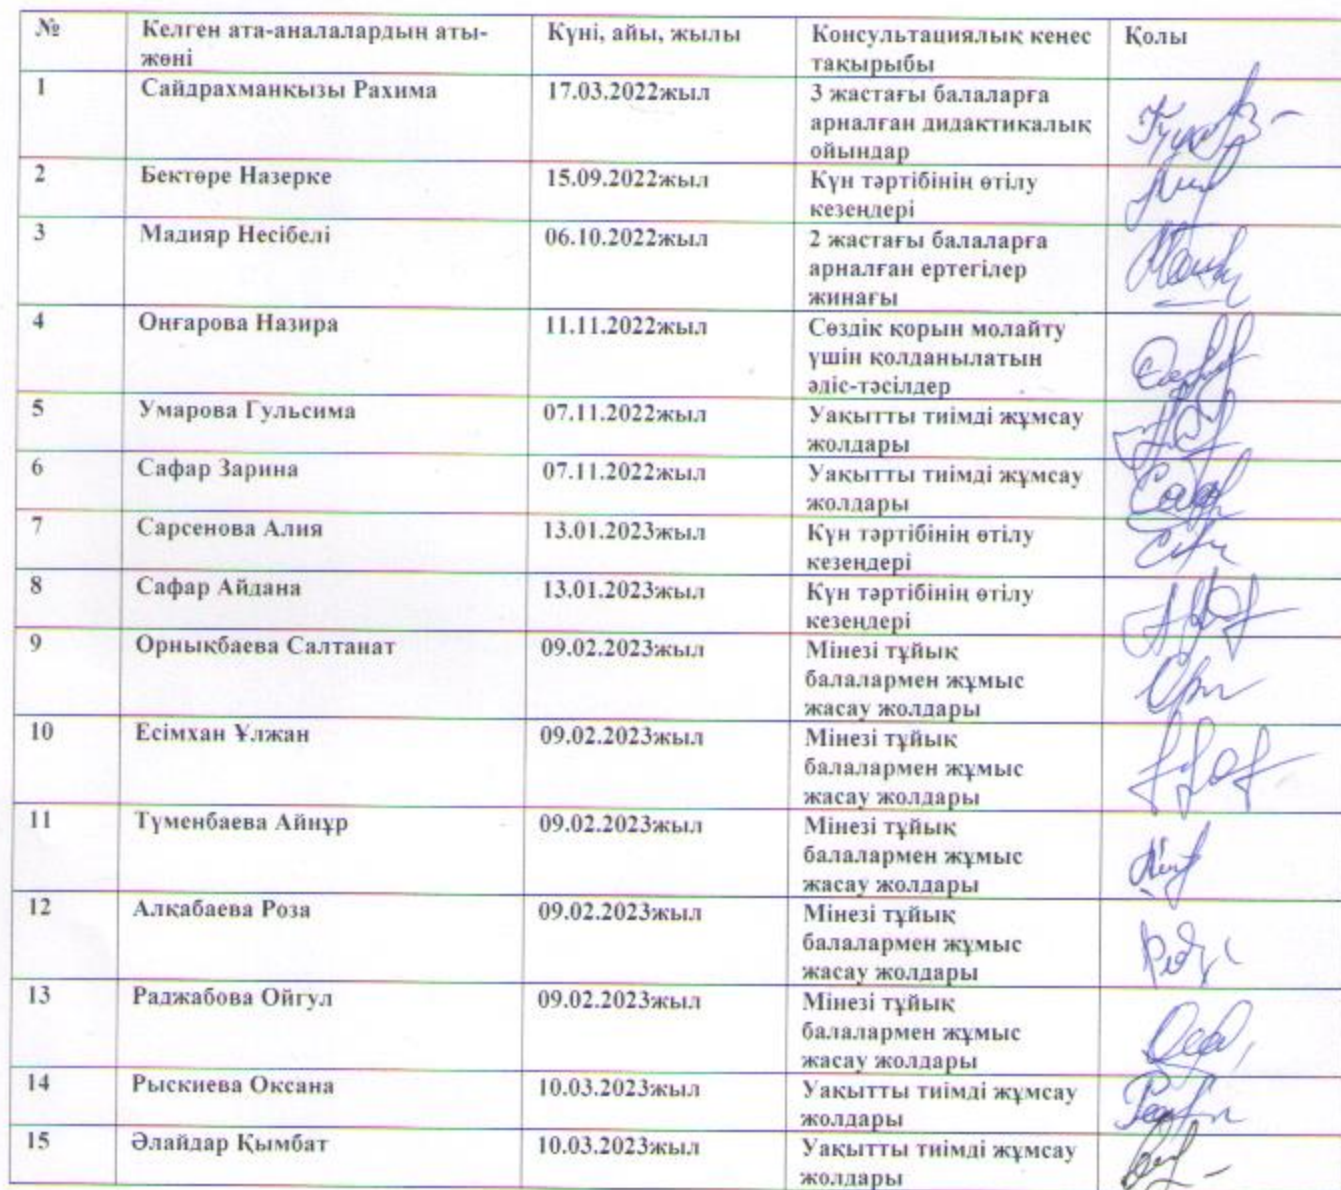 № Келген ата-аналалардың аты- Күні, айы, жылы Консультациялық кенес Қолы
жөні тақырыбы
1 Сайдрахманқызы Рахима 17.03.2022жыл 3 жастағы балаларға
арналған дидактикалық
ойындар
2 Бектөре Назерке 15.09.2022жыл Күн тәртібінің өтілу
кезеңдері
3 Мадияр Несібелі 06.10.2022жыл 2 жастағы балаларға
арналған ертегілер
жинағы
4 Оңғарова Назира 11.11.2022жыл Сөздік қорын молайту
үшін қолданылатын
әдіс-тәсілдер
5 Умарова Гульсима 07.11.2022жыл Уақытты тиімді жұмсау
жолдары
6 Сафар Зарина 07.11.2022жыл Уақытты тиімді жұмсау
жолдары
7 Сарсенова Алия 13.01.2023жыл Күн тәртібінің өтілу
кезеңдері
8 Сафар Айдана 13.01.2023жыл Күн тәртібінің өтілу
кезеңдері
9 Орныкбаева Салтанат 09.02.2023жыл Мінезі тұйық
балалармен жұмыс
жасау жолдары
10 Есімхан Ұлжан 09.02.2023жыл Мінезі тұйық
балалармен жұмыс
жасау жолдары
11 Түменбаева Айнұр 09.02.2023жыл Мінезі тұйық
балалармен жұмыс
жасау жолдары
12 Алқабаева Роза 09.02.2023жыл Мінезі тұйық
балалармен жұмыс
жасау жолдары
13 Раджабова Ойгул 09.02.2023жыл Мінезі тұйық
балалармен жұмыс
жасау жолдары
14 Рыскиева Оксана 10.03.2023жыл Уақытты тиімді жұмсау
жолдары
15 Әлайдар Қымбат 10.03.2023жыл Уақытты тиімді жұмсау
жолдары